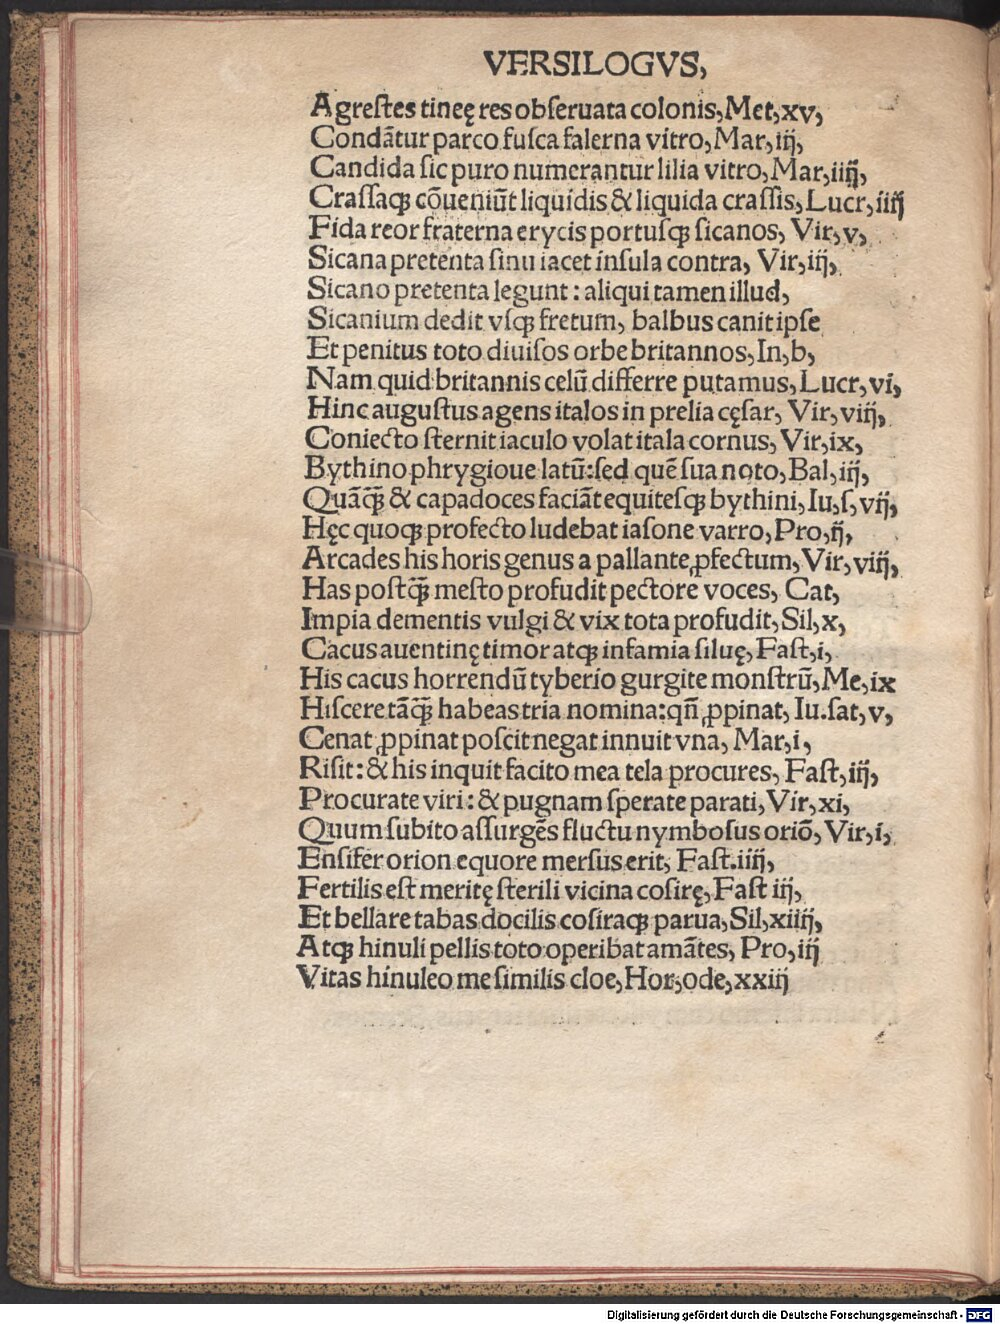 VERSILOGVS,
Agreſtes tineę res obſeruata colonis, Met, xv,
Condãtur parco fuſca falerna vitro, Mar, iij,
Candida ſic puro numerantur lilia vitro, Mar, iiij,
Craſſaqꝫ cõueniũt liquidis & liquida craſſis, Lucr, iiij
Fida reor fraterna erycis portuſqꝫ ſicanos, Vir, v,
Sicana pretenta ſinu iacet inſula contra, Vir, iij,
Sicano pretenta legunt: aliqui tamen illud,
Sicanium dedit vſqꝫ fretum, balbus canit ipſe
Et penitus toto diuiſos orbe britannos, In, b,
Nam quid britannis celũ differre putamus, Lucr, vi,
Hinc auguſtus agens italos in prelia cęſar, Vir, viij,
Coniecto ſternit iaculo volat itala cornus, Vir, ix,
Bythino phrygioue latũ: ſed quẽ ſua noto, Bal, iij,
Quãqꝫ̃ & capadoces faciãt equiteſqꝫ bythini, Iu, ſ, vij,
Hęc quoqꝫ profecto ludebat iaſone varro, Pro, ij,
Arcades his horis genus a pallante ꝓfectum, Vir, viij,
Has poſtqꝫ̃ meſto profudit pectore voces, Cat,
Impia dementis vulgi & vix tota profudit, Sil, x,
Cacus auentinę timor atqꝫ infamia ſiluę, Faſt, i,
His cacus horrendũ tyberio gurgite monſtrũ, Me, ix
Hiſcere tãqꝫ̃ habeas tria nomina: qñ ꝓpinat, Iu. ſat, v,
Cenat ꝓpinat poſcit negat innuit vna, Mar, i,
Riſit: & his inquit facito mea tela procures, Faſt, iij,
Procurate viri: & pugnam ſperate parati, Vir, xi,
Quum ſubito aſſurgẽs fluctu nymboſus oriõ, Vir, i,
Enſifer orion equore merſus erit, Faſt. iiij,
Fertilis eſt meritę ſterili vicina coſirę, Faſt iij,
Et bellare tabas docilis coſiraqꝫ parua, Sil, xiiij,
Atqꝫ hinuli pellis toto operibat amãtes, Pro, iij
Vitas hinuleo me ſimilis cloe, Hor, ode, xxiij
Digitalisierung gefördert durch die Deutsche Forschungsgemeinschaft - DFG